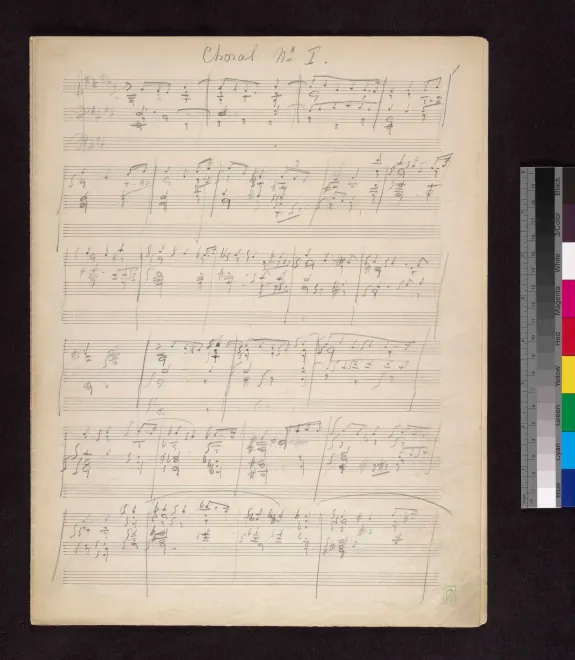 Choral No I.
Black
3-Color
White
Magenta
Red
Yellow
Green
Cyan
Blue